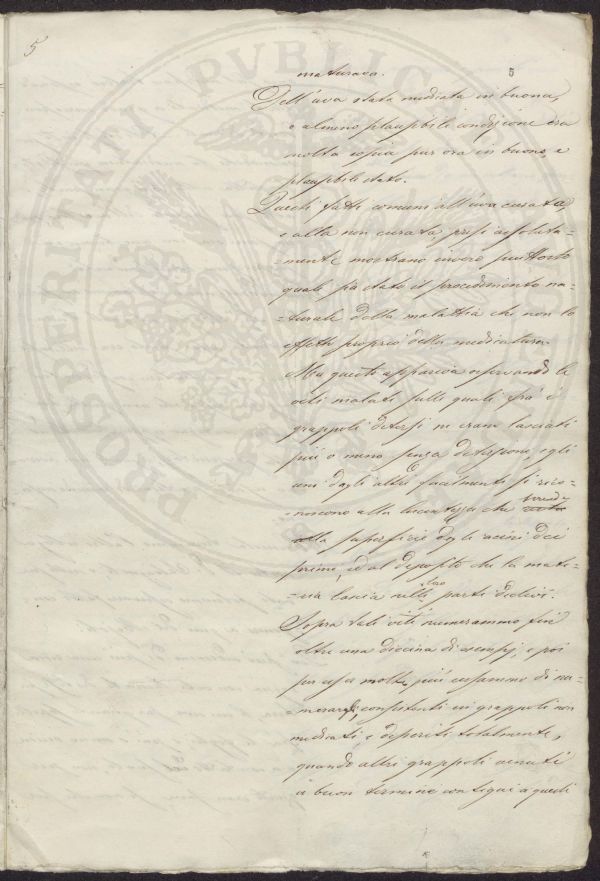 5
5
maturava.
Dell'uva stata mediata in buona,
o almeno plausibili condizione era
molta copia pur ora in buono, e
plausibili stato.
Questi fatti comuni all'uva curata,
e alla non curata, presi assoluta-
-mente mostrano invero piuttosto
quale sia stato il procedimento na-
-turale della malattia che non lo
effetto proprio della medicatura.
Ma questo appariva osservando le
viti malate sulle quali fra i
grappoli detersi ne erano lasciati
più o meno senza detersione, e gli
uni dagli altri facilmente si rico-
-noscono alla lucentezza che
alla superficie degli acini dei
primi, ed al deposito che la mate-
-ria lascia nelle loro parti declivi.
Sopra tali viti numerammo fin
oltre una diecina di esempj, e poi
per esser molti, più cessammo di nu-
-merarli, consistenti in grappoli non
mediati e deperiti totalmente,
quando altri grappoli venuti
a buon termine contigui a quelli
PROSPERITATI PUBLICAE